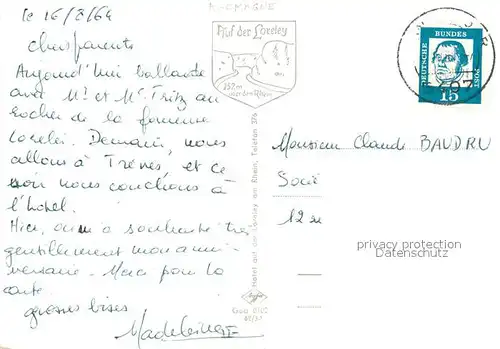 ALLEMAGNE
le 16/8/64
chers parents
Aujourd'hui ballade
avec Mr et Me Fritz au
rocher de la fameuse
Lorelei. Demain, nous
allons à Trèves, et ce
soir nous couchons à
l'hotel.
Hier, on m'a souhaité très
gentillement mon anni-
versaire. Merci pour la
carte.
grosses bises
Madeleine
Auf der Loreley
132 m
über dem Rhein
Hotel auf der Loreley am Rhein, Telefon 376
Agfa
DEUTSCHE BUNDESPOST
15
Monsieur Claude BAUDRU
12
privacy protection
Datenschutz